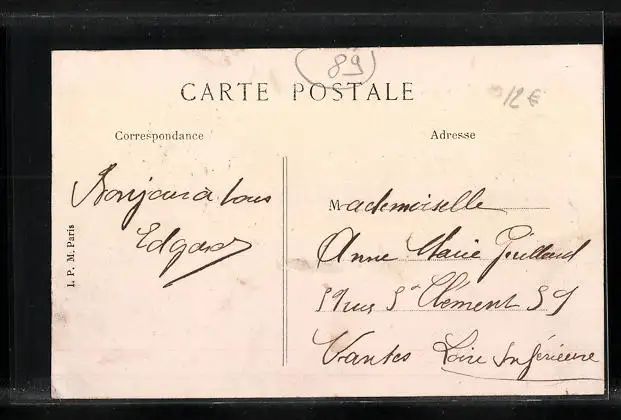 89
CARTE POSTALE
12 €
Correspondance
Adresse
Bonjour à tous
Edgard
I. P. M. Paris
Mademoiselle
Anne Marie
Rue St Clément
Nantes Loire Inférieure